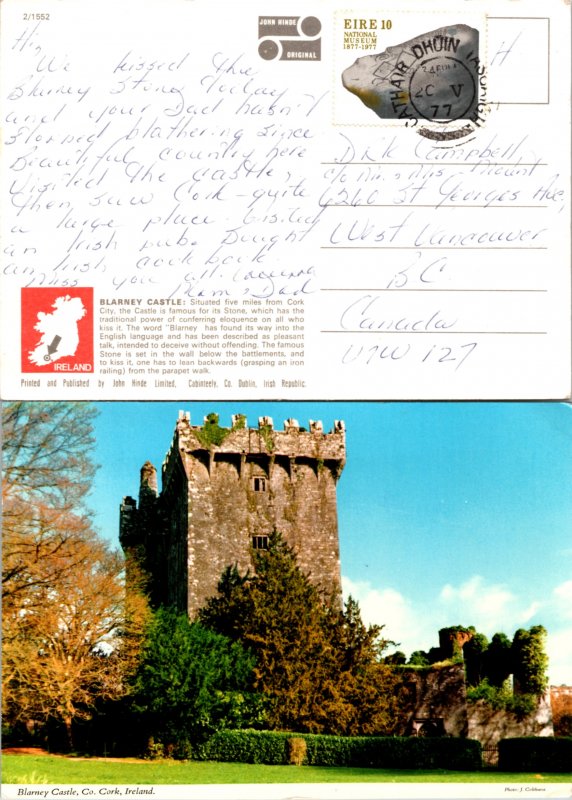 2/1552
JOHN HINDE
ORIGINAL
EIRE 10
NATIONAL
MUSEUM
1877-1977
CATHAIR DHÚIN
V
77
Hi,
We kissed the
Blarney Stone today
and your Dad hasn't
stopped blathering since
Beautiful country here
Visited the castle,
then saw Cork - quite
a large place. Visited
an Irish pub. Bought
an Irish cook book.
Miss you all.
Mom & Dad
Dirk Campbell
c/o Mr. & Mrs.
6260 St Georges Ave,
West Vancouver
BC
Canada
V7W 1Z7
IRELAND
BLARNEY CASTLE: Situated five miles from Cork
City, the Castle is famous for its Stone, which has the
traditional power of conferring eloquence on all who
kiss it. The word "Blarney has found its way into the
English language and has been described as pleasant
talk, intended to deceive without offending. The famous
Stone is set in the wall below the battlements, and
to kiss it, one has to lean backwards (grasping an iron
railing) from the parapet walk.
Printed and Published by John Hinde Limited, Cabinteely, Co. Dublin, Irish Republic.
Blarney Castle, Co. Cork, Ireland.